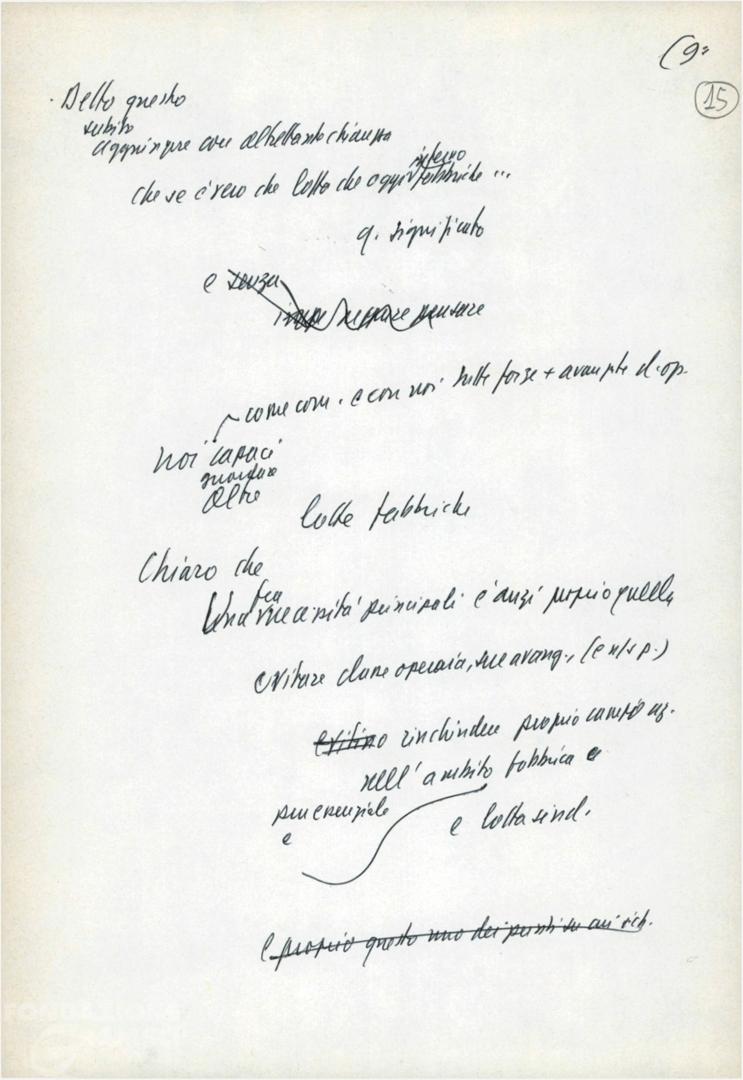 (9ª
15
· Detto questo
subito
aggiungere con altrettanta chiarezza
interno
che se è vero che lotta che oggi fabbriche ...
q. significato
e senza
neppure pensare
come com. e con noi tutte forze + avanzate d. op.
noi capaci
guardare
oltre
lotte fabbriche
Chiaro che
tra
Una necessità principali è anzi proprio quella
evitare classe operaia, sue avang., (e n/s p.)
evitino rinchiudere proprio campo az.
nell'ambito fabbrica e
pur essenziale
e
e lotta sind.
e proprio questo uno dei punti su cui rich.
FONDAZIONE